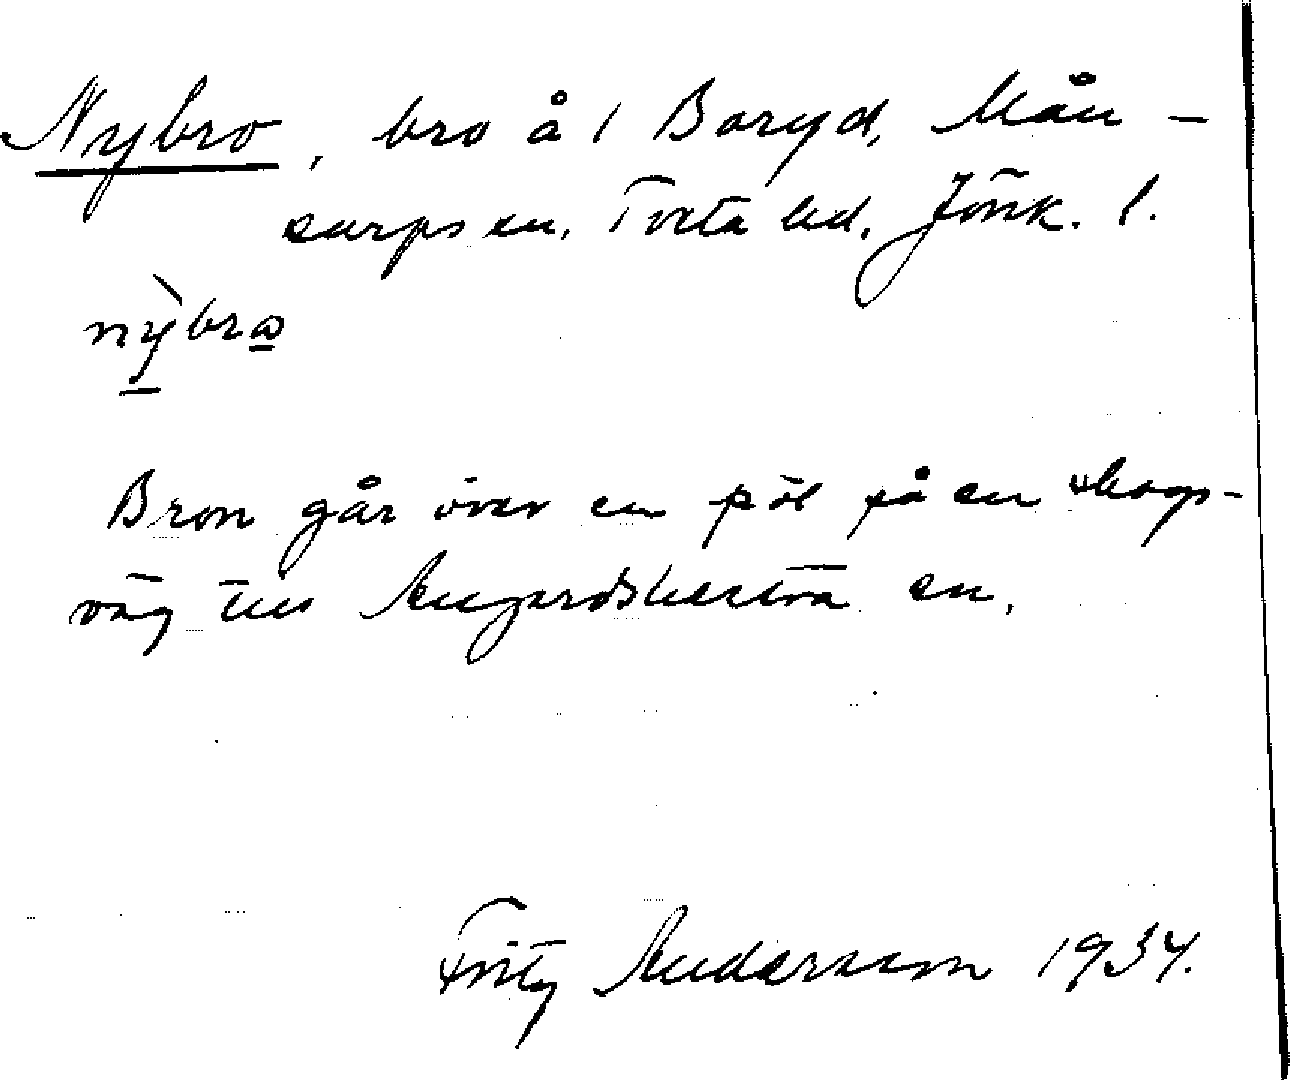 Nybro, bro å 1 Boryd, Mån-
sarps sn. Tveta hd. Jönk. l.
nỳbrω
Bron går över en pöl på en skogs-
väg till Angerdshestra sn.
Fritz Andersson 1934.